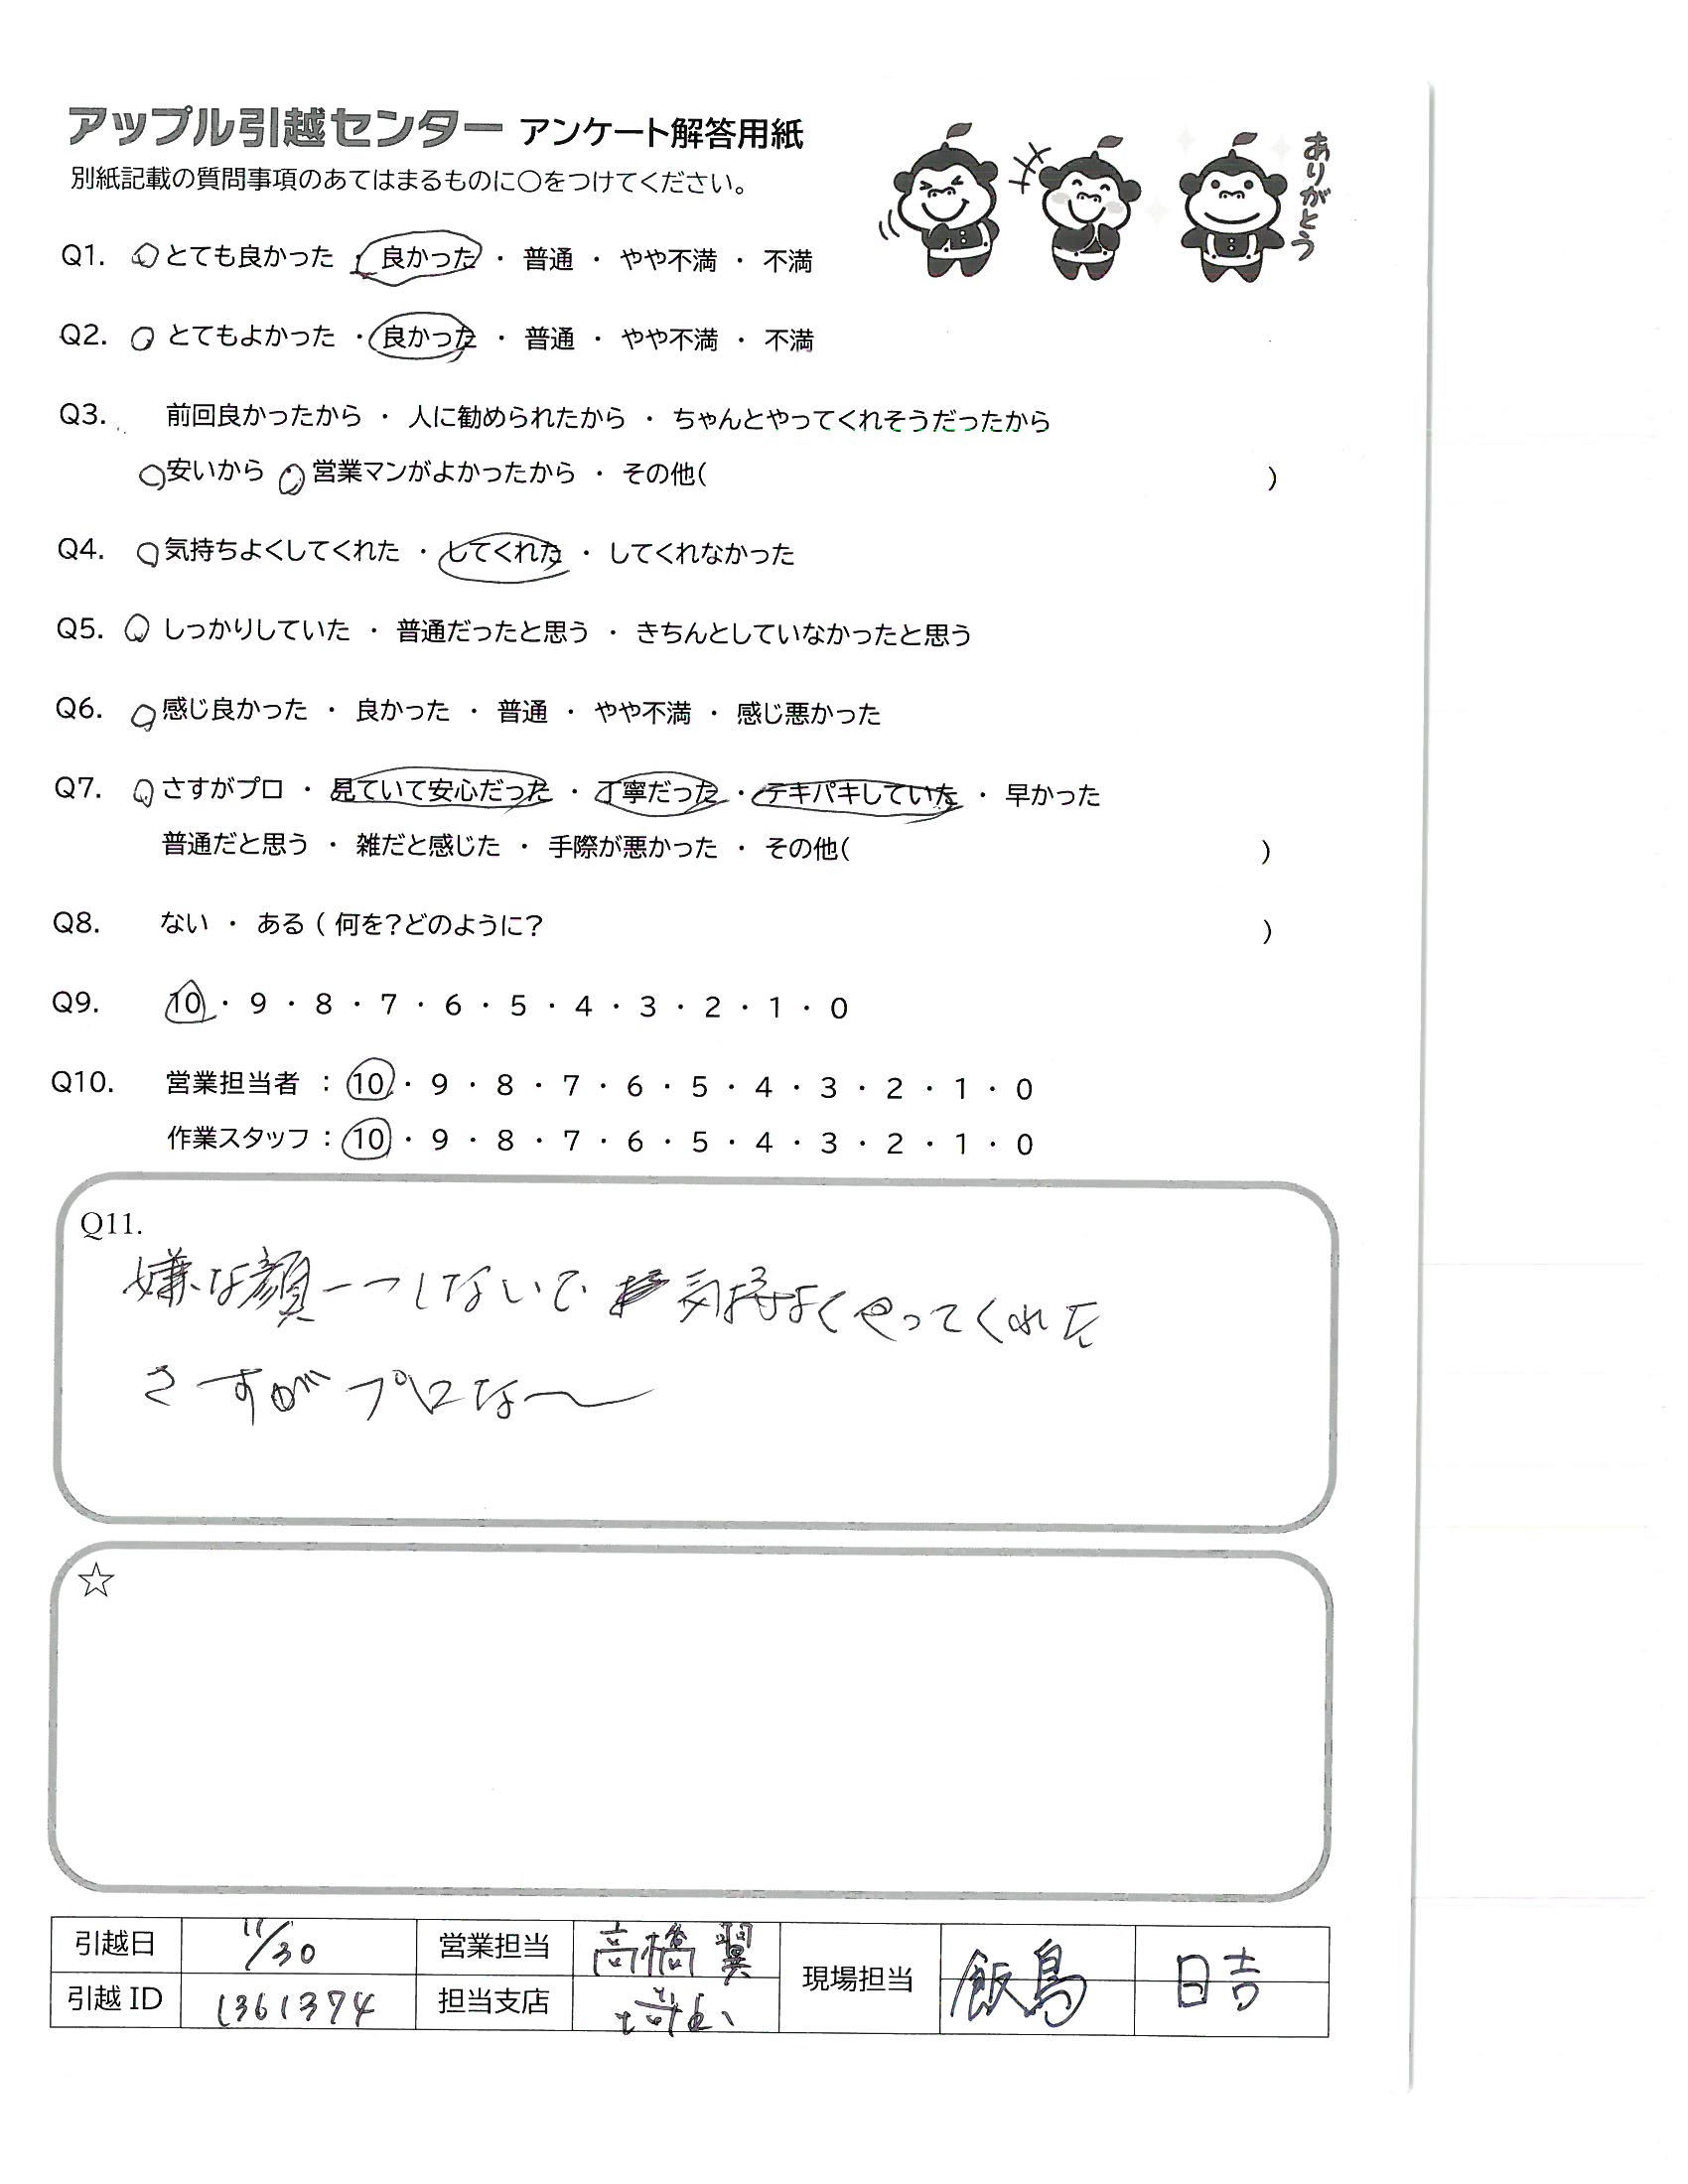 アップル引越センター アンケート解答用紙
別紙記載の質問事項のあてはまるものに○をつけてください。
ありがとう
Q1. ○とても良かった ・ 良かった ・ 普通 ・ やや不満 ・ 不満
Q2. ○とてもよかった ・ 良かった ・ 普通 ・ やや不満 ・ 不満
Q3. 前回良かったから ・ 人に勧められたから ・ ちゃんとやってくれそうだったから
○安いから ○営業マンがよかったから ・ その他( )
Q4. ○気持ちよくしてくれた ・ してくれた ・ してくれなかった
Q5. ○しっかりしていた ・ 普通だったと思う ・ きちんとしていなかったと思う
Q6. ○感じ良かった ・ 良かった ・ 普通 ・ やや不満 ・ 感じ悪かった
Q7. ○さすがプロ ・ 見ていて安心だった ・ 丁寧だった ・ テキパキしていた ・ 早かった
普通だと思う ・ 雑だと感じた ・ 手際が悪かった ・ その他( )
Q8. ない ・ ある ( 何を?どのように? )
Q9. 10 ・ 9 ・ 8 ・ 7 ・ 6 ・ 5 ・ 4 ・ 3 ・ 2 ・ 1 ・ 0
Q10. 営業担当者 : 10 ・ 9 ・ 8 ・ 7 ・ 6 ・ 5 ・ 4 ・ 3 ・ 2 ・ 1 ・ 0
作業スタッフ : 10 ・ 9 ・ 8 ・ 7 ・ 6 ・ 5 ・ 4 ・ 3 ・ 2 ・ 1 ・ 0
Q11.
嫌な顔一つしないで 気持よくやってくれた
さすがプロな〜
☆
引越日 11/30 営業担当 高橋翼 現場担当 飯島 日吉
引越ID 1361374 担当支店